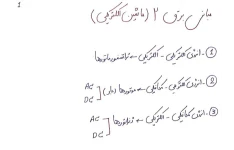 1
مبانی برق ۲ (ماشین الکتریکی)
① - انرژی الکتریکی - الکتریکی ← ترانسفورماتورها
② - انرژی الکتریکی - مکانیکی ← موتورها [ AC
DC
③ - انرژی مکانیکی - الکتریکی ← ژنراتورها [ AC
DC